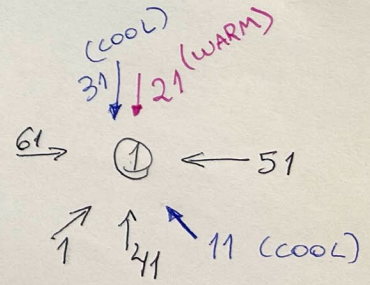 (COOL)
31
21 (WARM)
61
1
51
1
41
11 (COOL)